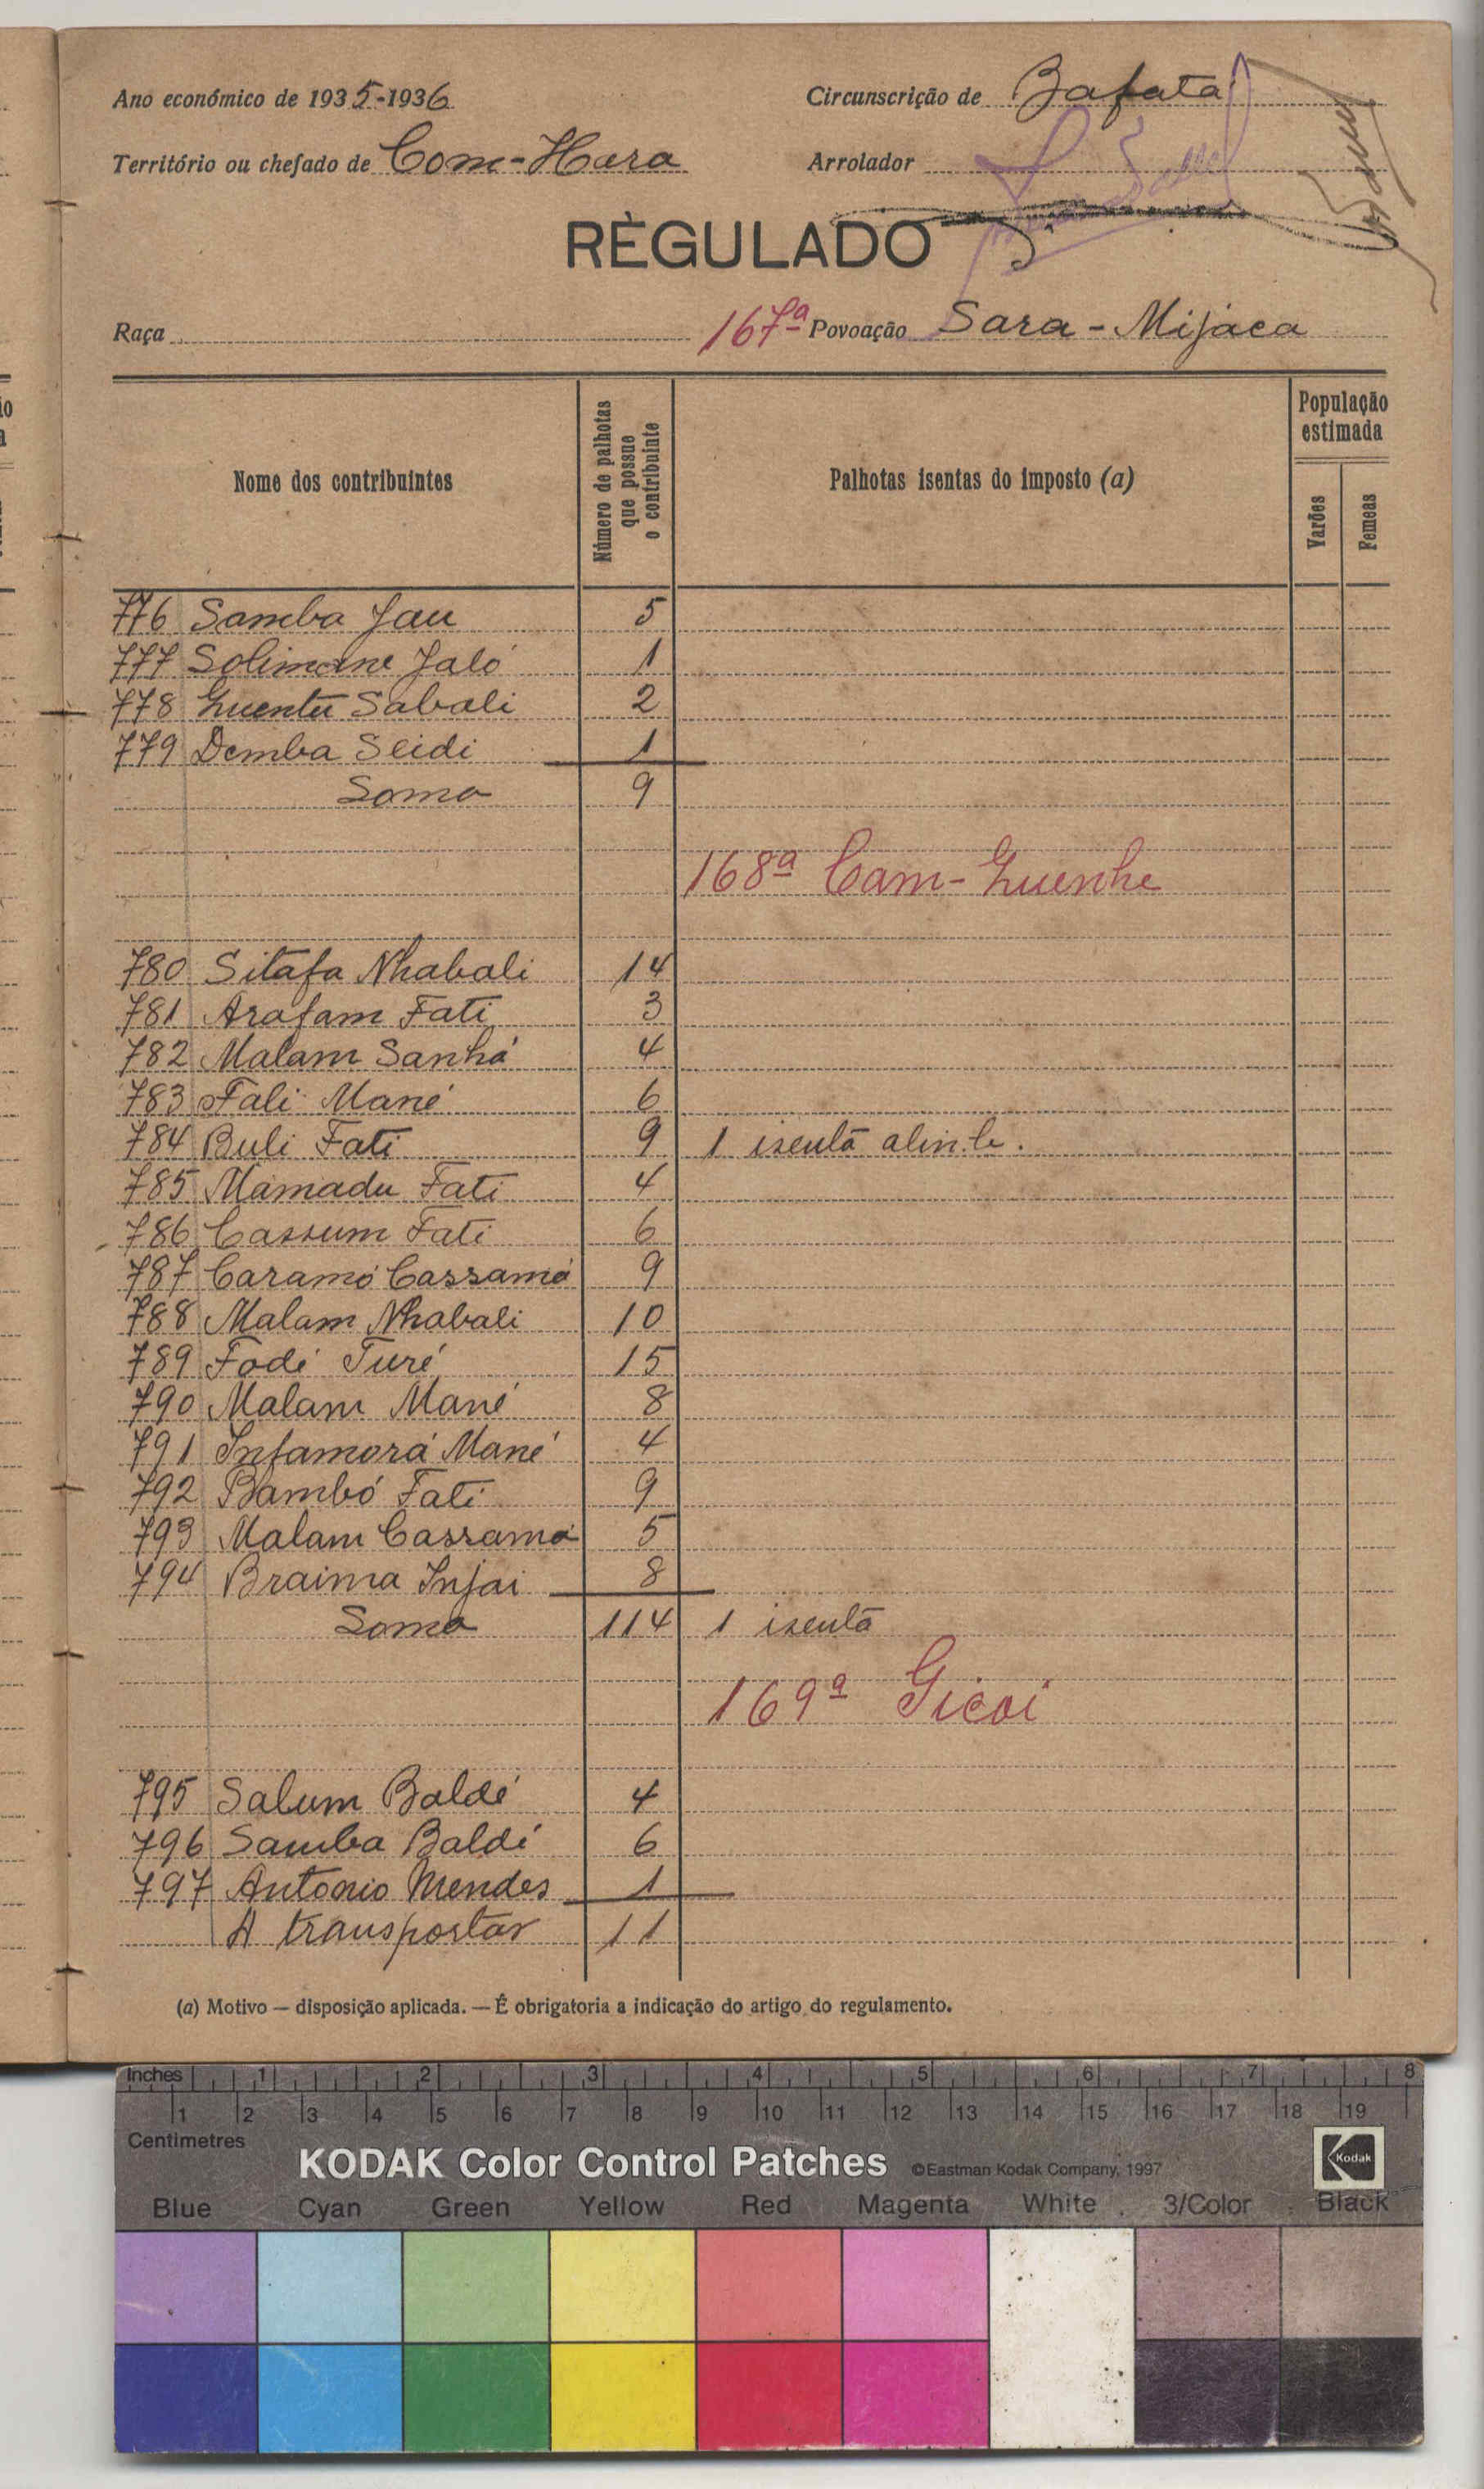 Ano económico de 1935-1936
Circunscrição de Bafata
Território ou chefado de Com-Hara
Arrolador
RÈGULADO
Raça
167ª Povoação Sara-Mijaca
Nome dos contribuintes
Número de palhotas que possue o contribuinte
Palhotas isentas do imposto (a)
População estimada
Varões
Femeas
776 Samba Jau 5
777 Solimane Jaló 1
778 Guentu Sabali 2
779 Demba Seidi 1
Soma 9
168ª Cam-Guenhe
780 Sitafa Nhabali 14
781 Arafam Fati 3
782 Malam Sanhá 4
783 Fali Mané 6
784 Buli Fati 9 1 isenta
785 Mamadu Fati 4
786 Cassum Fati 6
787 Caramó Cassamá 9
788 Malam Nhabali 10
789 Fodé Turé 15
790 Malam Mané 8
791 Infamorá Mané 4
792 Bambó Fati 9
793 Malam Cassamá 5
794 Braima Injai 8
Soma 114 1 isenta
169ª Gicoi
795 Salum Baldé 4
796 Samba Baldé 6
797 Antonio Mendes 1
A transportar 11
(a) Motivo — disposição aplicada. — É obrigatoria a indicação do artigo do regulamento.
Inches 1 2 3 4 5 6 7 8
1 2 3 4 5 6 7 8 9 10 11 12 13 14 15 16 17 18 19
Centimetres
KODAK Color Control Patches ©Eastman Kodak Company, 1997 Kodak
Blue Cyan Green Yellow Red Magenta White 3/Color Black